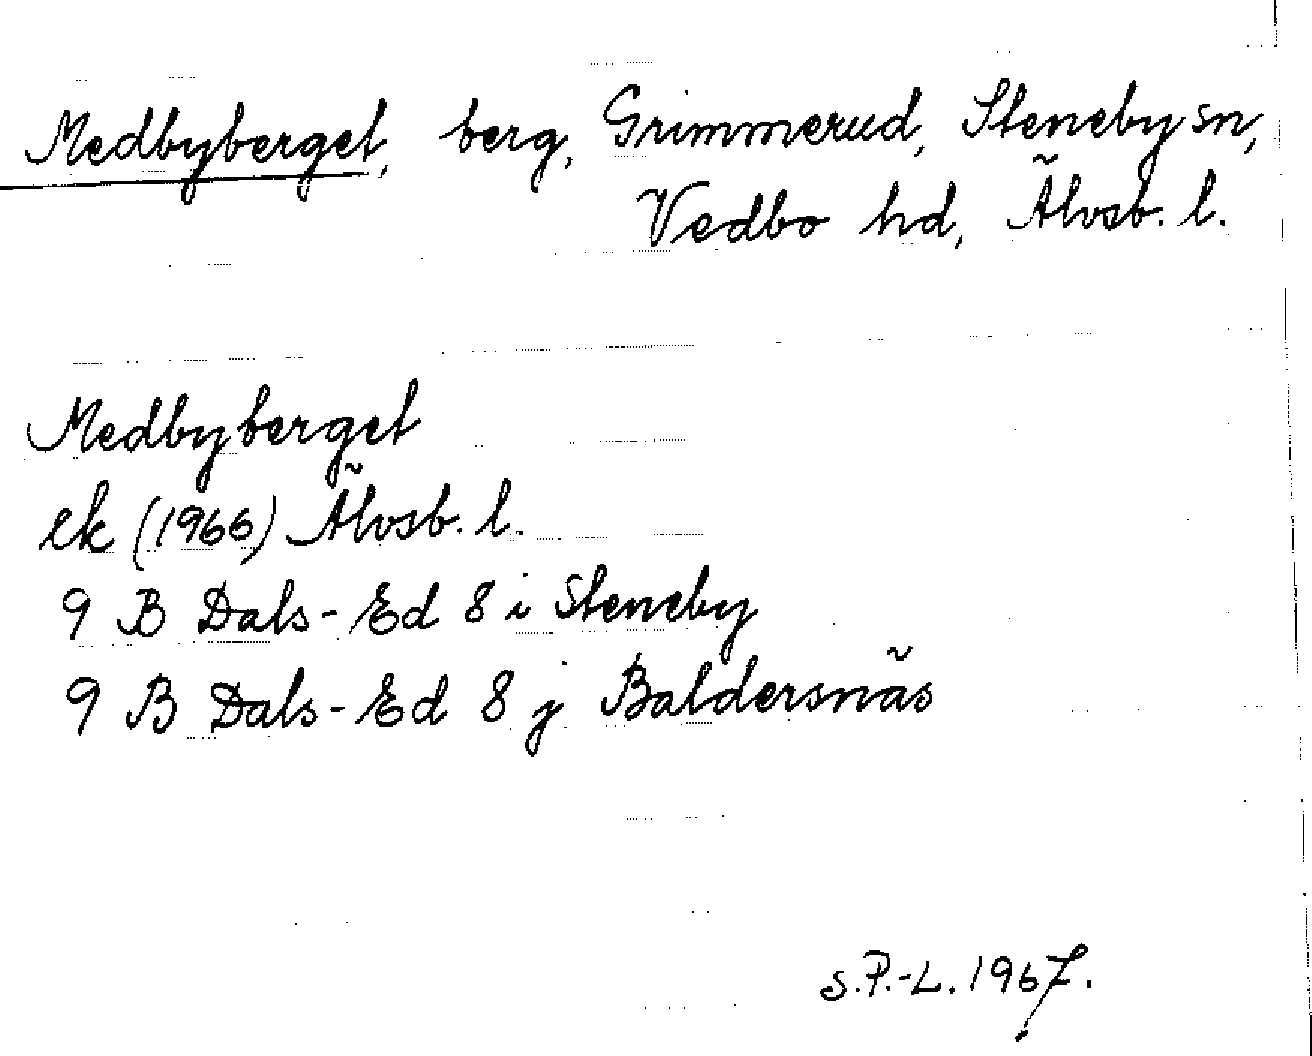 Medbyberget, berg, Grimmerud, Steneby sn,
Vedbo hd, Älvsb. l.
Medbyberget
ek (1966) Älvsb. l.
9 B Dals-Ed 8 i Steneby
9 B Dals-Ed 8 j Baldersnäs
S.P.-L. 1967.